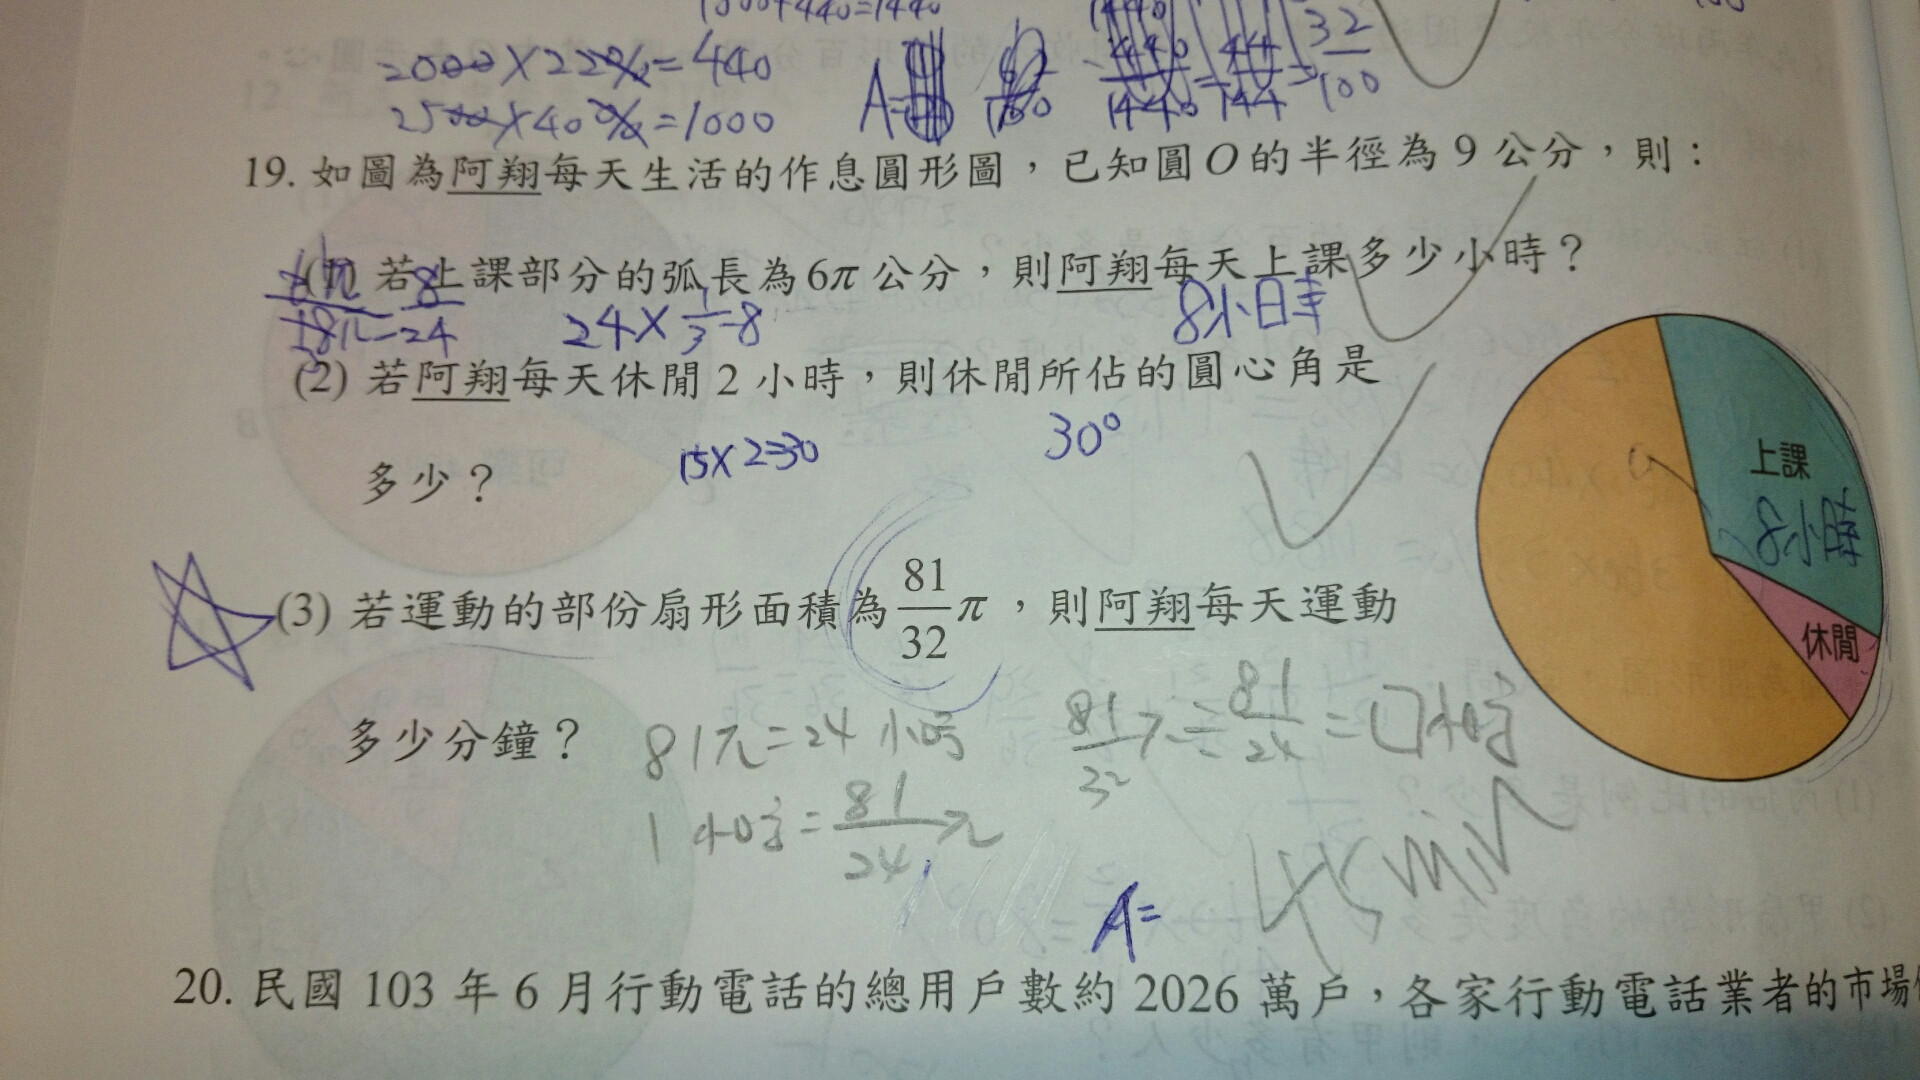 2000×22%=440
2500×40%=1000
32
100
19. 如圖為阿翔每天生活的作息圓形圖，已知圓O的半徑為9公分，則：
(1) 若上課部分的弧長為6π公分，則阿翔每天上課多少小時？
24×1/3=8
8小時
(2) 若阿翔每天休閒2小時，則休閒所佔的圓心角是
多少？
15×2=30
30°
上課
8小時
休閒
(3) 若運動的部份扇形面積為81/32π，則阿翔每天運動
多少分鐘？
81π=24小時
1小時=81/24π
45min
A=
20. 民國103年6月行動電話的總用戶數約2026萬戶，各家行動電話業者的市場